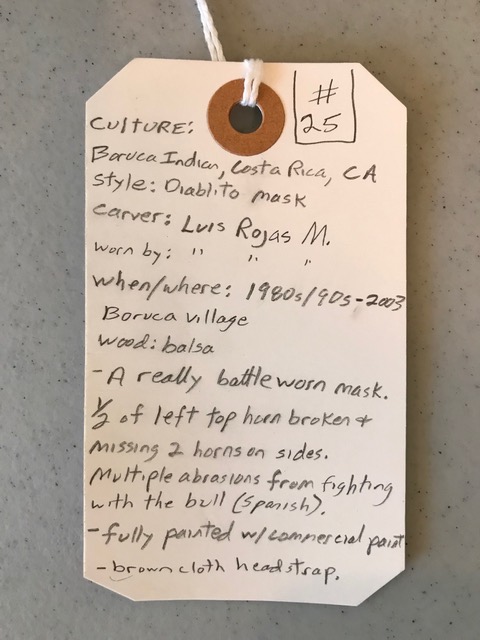 #
25
CULTURE:
Boruca Indian, Costa Rica, CA
Style: Diablito mask
Carver: Luis Rojas M.
Worn by: " " "
When/where: 1980s/90s-2003
Boruca village
Wood: balsa
- A really battleworn mask.
1/2 of left top horn broken +
missing 2 horns on sides.
Multiple abrasions from fighting
with the bull (Spanish).
- fully painted w/commercial paint
- brown cloth headstrap.